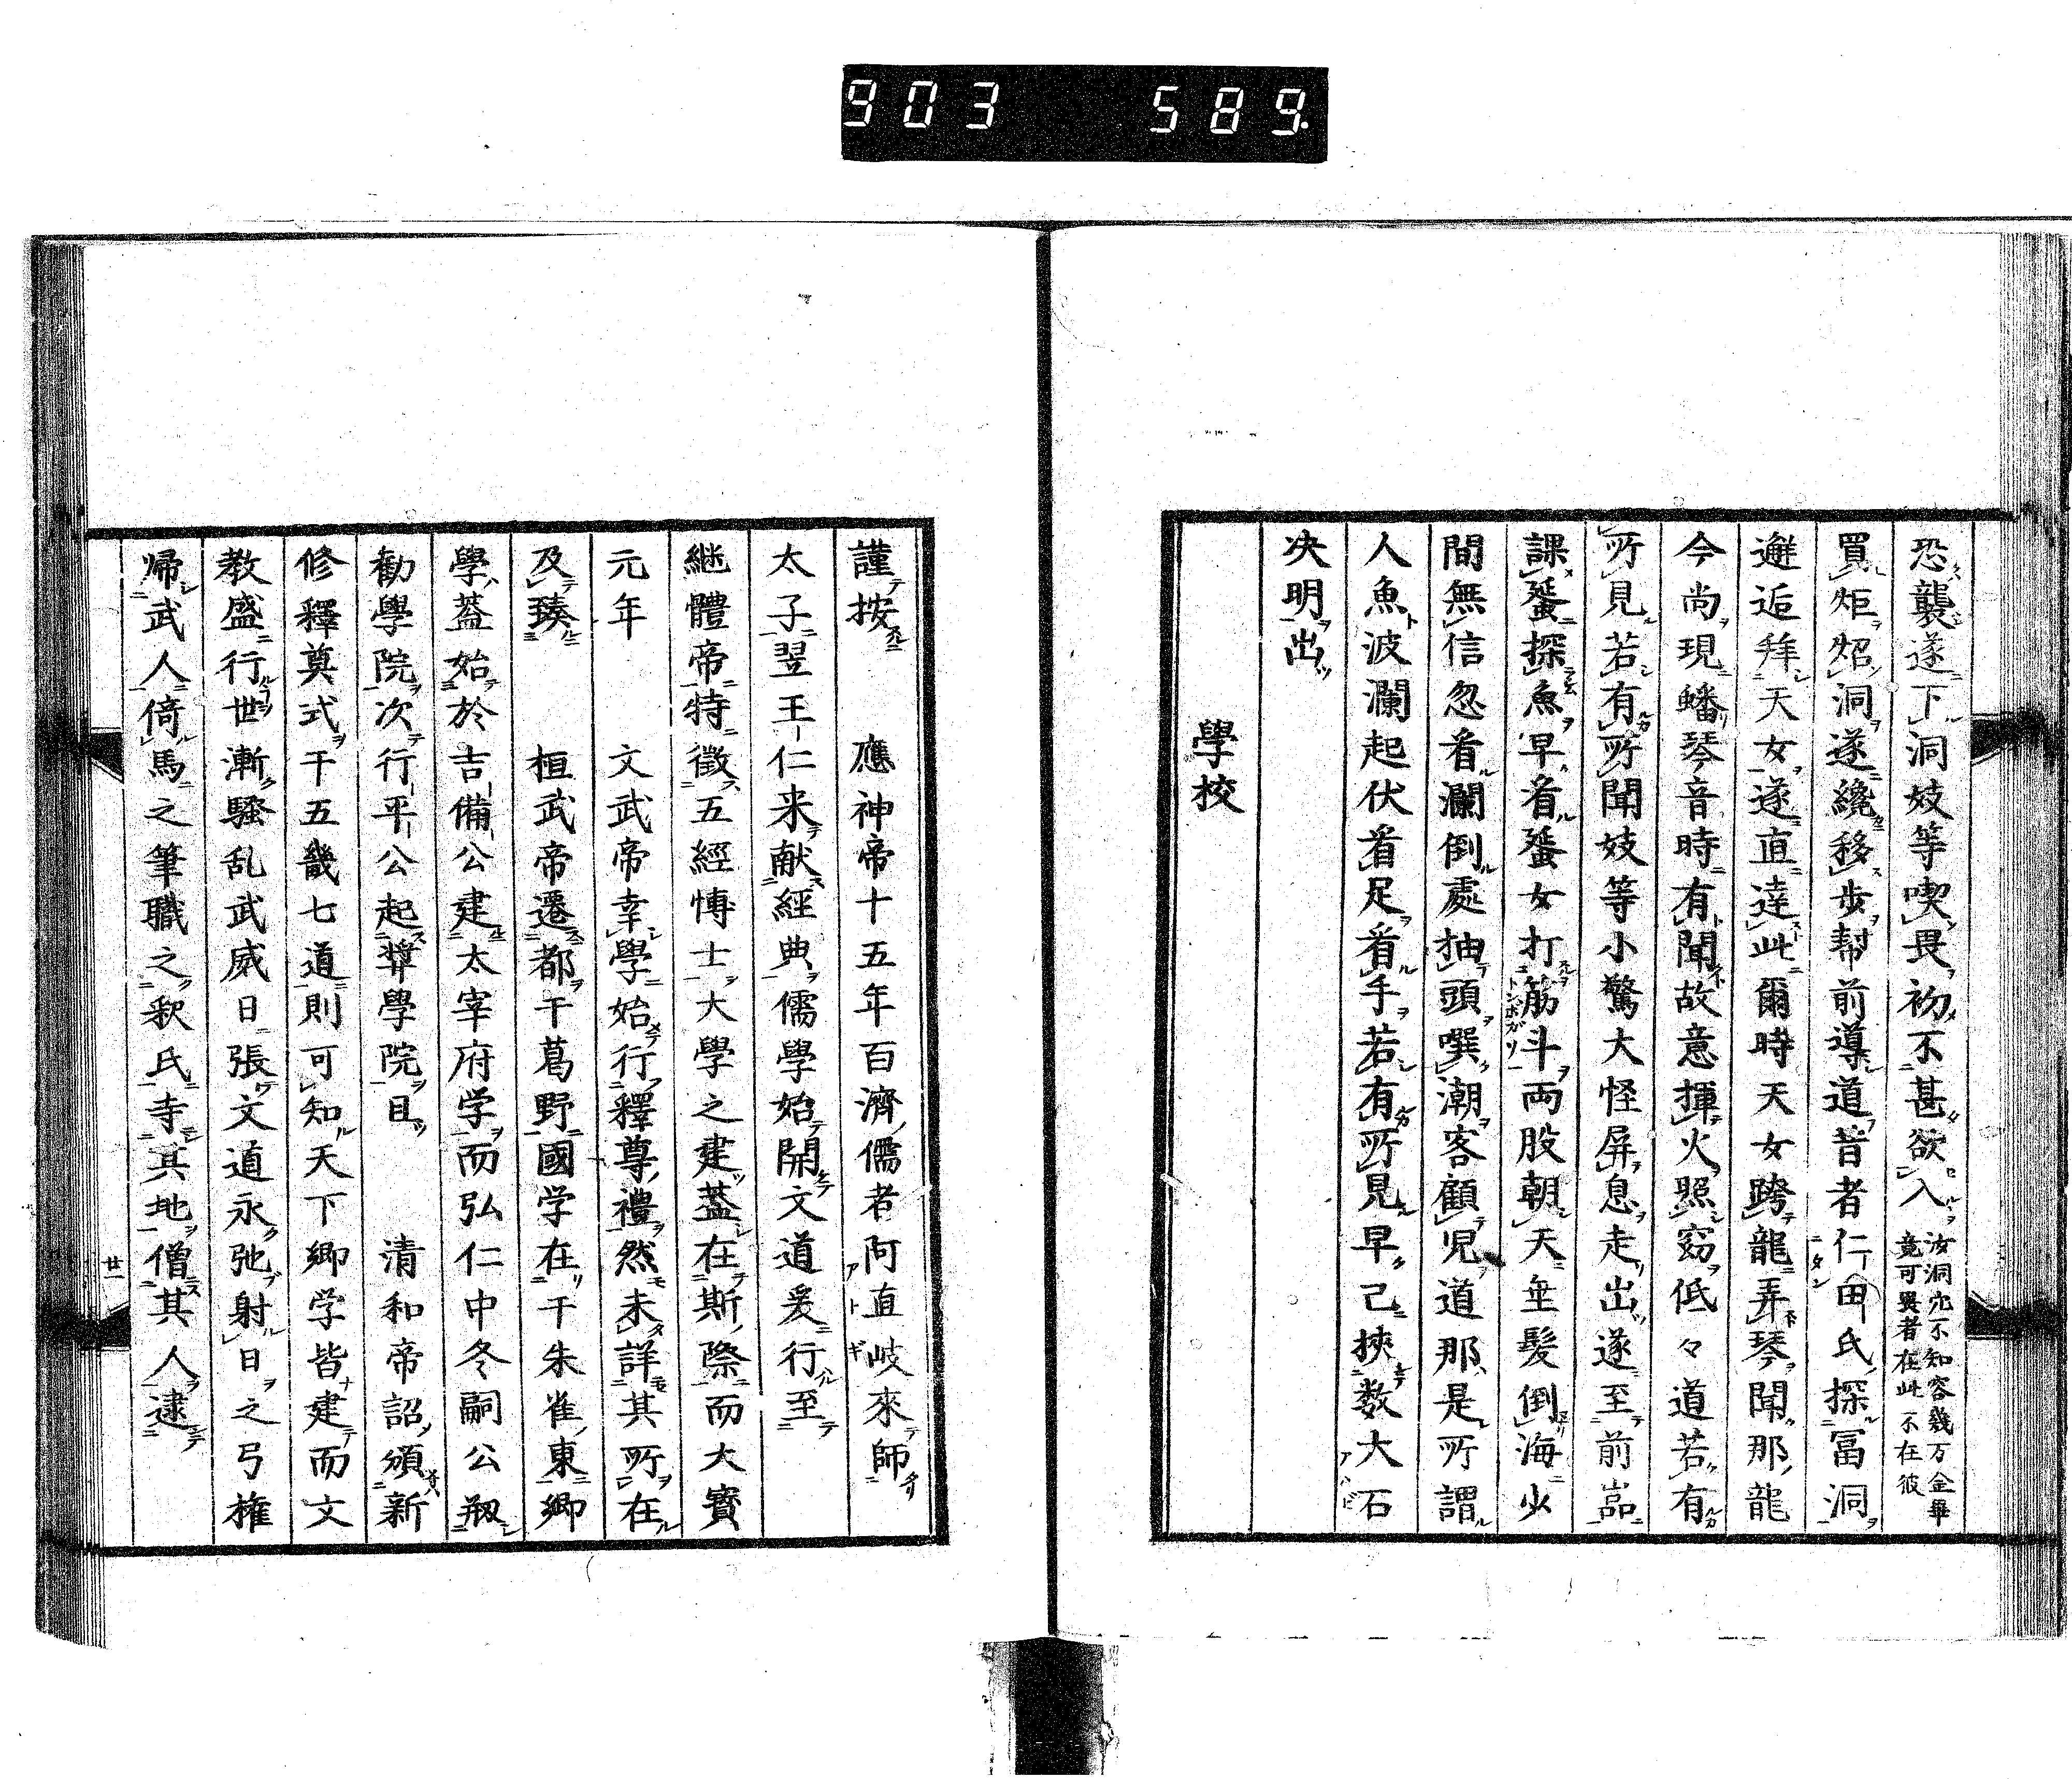 903 589.
恐襲遂下洞妓等喫畏初不甚欲入汝洞究不知容幾万金畢
竟可異者在此不在彼
買炬炤洞遂纔移步幇前導道昔者仁田氏探冨洞
邂逅拜天女遂直達此爾時天女跨龍弄琴聞那龍
今尚現蟠琴音時有聞故意揮火照窈低々道若有
所見若有所聞妓等小驚大怪屏息走出遂至前嵓
課蜑探魚早看蜑女打筋斗両股朝天垂髮倒海少
間無信忽看瀾倒處抽頭噀潮客顧児道那是所謂
人魚波瀾起伏看足看手若有所見早已挾数大石
决明出
學校
謹按　應神帝十五年百濟儒者阿直岐來師
太子翌王仁来献經典儒學始開文道爰行至
継體帝特徴五經愽士大學之建蓋在斯際而大寳
元年　文武帝幸學始行釋尊禮然未詳其所在
及臻　桓武帝遷都于葛野國学在于朱雀東郷
學蓋始於吉備公建太宰府学而弘仁中冬嗣公剏
勸學院次行平公起奨學院目　清和帝詔頒新
修釋奠式于五畿七道則可知天下郷学皆建而文
教盛行世漸騷乱武威日張文道永弛射日之弓権
帰武人倚馬之筆職之釈氏寺其地僧其人逮
廿一